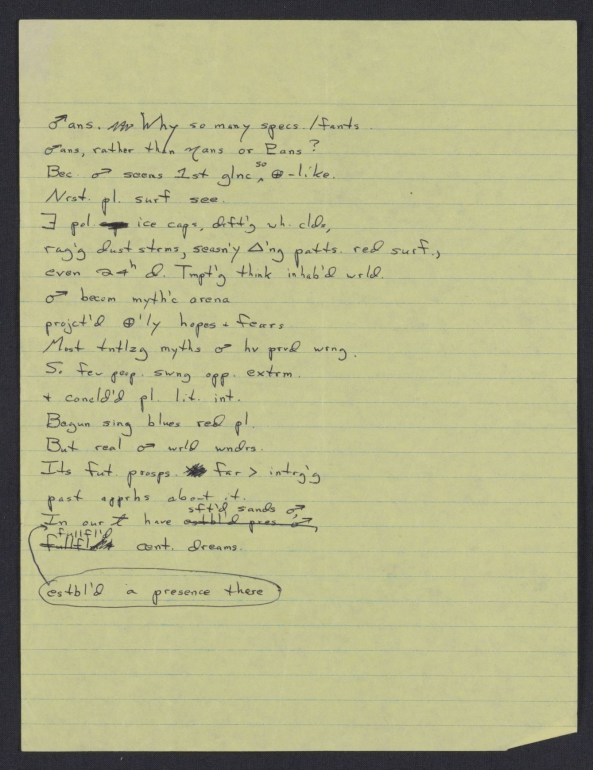 ♂ans. Why so many specs./fants
♂ans, rather than ♄ans or ♇ans?
Bec. ♂ seems 1st glnc so ⊕-like.
Nrst. pl. surf see.
∃ pol. ice caps, drft'g wh. clds,
rag'g dust strms, seasn'y Δ'ng patts. red surf.,
even 24h d. Tmpt'g think inhab'd wrld.
♂ becom myth'c arena
projct'd ⊕'ly hopes + fears
Most tntlzg myths ♂ hv prvd wrng.
So few peop. swng opp. extrm.
+ concld'd pl. lit. int.
Begun sing blues red pl.
But real ♂ wrld wndrs.
Its fut. prosps. far > intrg'g
past apprhs about it.
In our t have sft'd sands ♂ estbl'd pres ♂
fullfll'd cent. dreams.
estbl'd a presence there